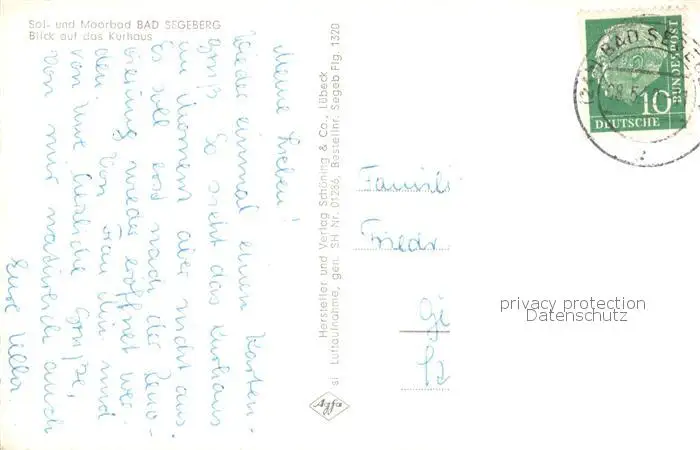 Sol- und Moorbad BAD SEGEBERG
Blick auf das Kurhaus
Meine Lieben!
Wieder einmal einen Karten-
gruß. So sieht das Kurhaus
im Moment aber nicht aus
Es soll erst nach der Reno-
vierung wieder eröffnet wer-
den. Von Frau und
von Uwe herzliche Grüße,
von mir natürlich auch
Eure Ulla
Hersteller und Verlag Schöning & Co., Lübeck
si Luftaufnahme, gen. SH Nr. 01286, Bestellnr. Segeb Flg. 1320
Agfa
BAD SE
DEUTSCHE
BUNDESPOST
10
Famili
Friedr
Gi
privacy protection
Datenschutz